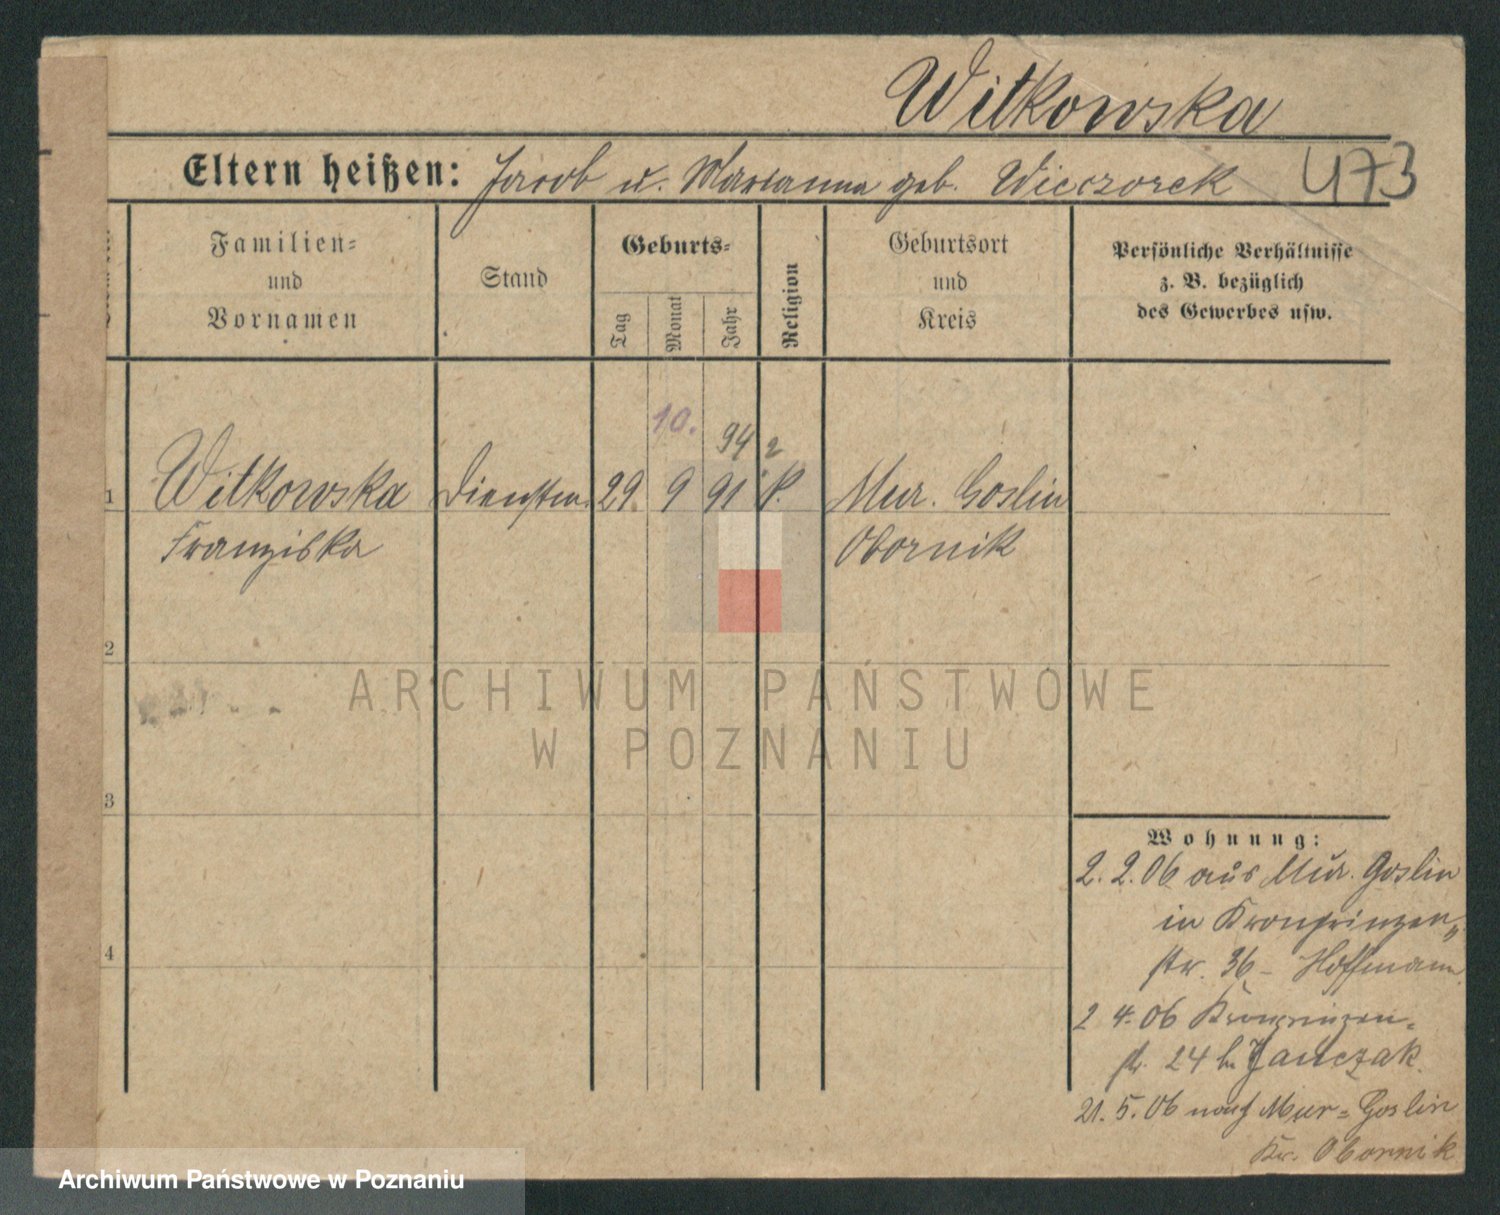 Witkowska
Eltern heißen: Jacob u. Marianna geb. Wieczorek 473
Familien- und Vornamen
Stand
Geburts-
Tag Monat Jahr
Religion
Geburtsort und Kreis
Persönliche Verhältnisse
z. B. bezüglich
des Gewerbes usw.
10.
94
1 Witkowska 29. 9 91 Mur. Goslin
Franziska Obornik
2
3
4
ARCHIWUM PAŃSTWOWE
W POZNANIU
Wohnung:
2. 2. 06 aus Mur. Goslin
in Kronprinzen„
str. 36 – Hoffmann
2 4. 06 Kronprinzen-
str. 24 b. Janczak.
21. 5. 06 nach Mur-Goslin
Kr. Obornik
Archiwum Państwowe w Poznaniu